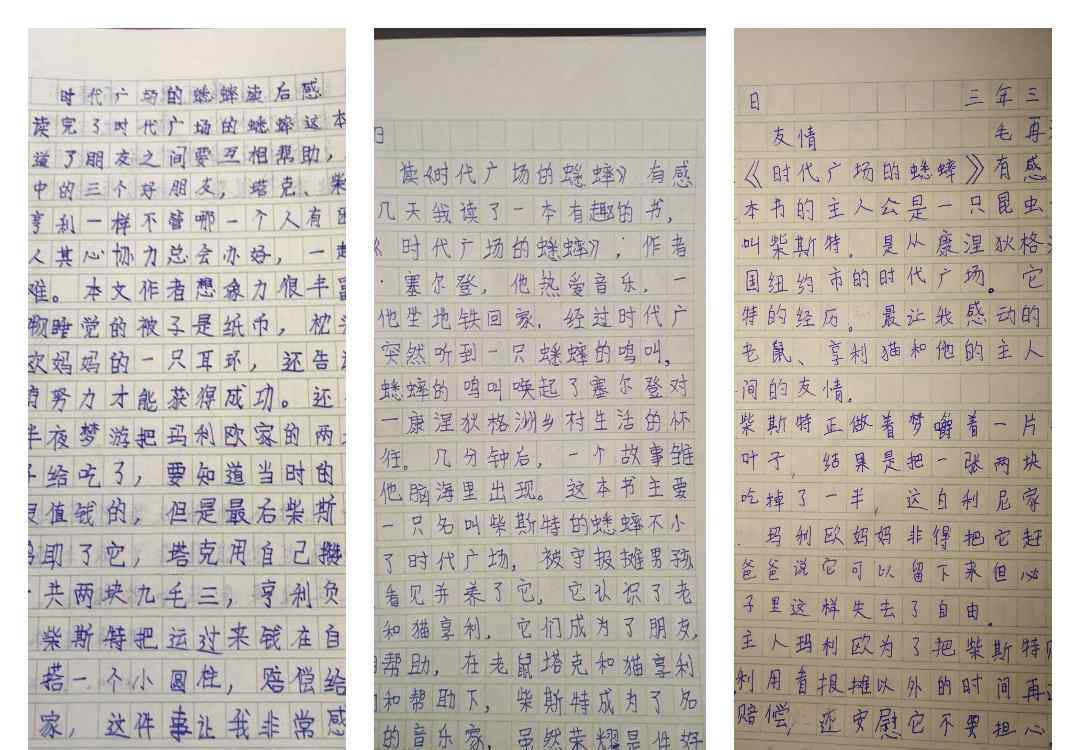 时代广场的蟋蟀读后感
读完了时代广场的蟋蟀这本
道了朋友之间要互相帮助，
中的三个好朋友，塔克、柴
亨利一样不管哪一个人有困
人其心协力总会办好，一起
难。本文作者想象力很丰富
物睡觉的被子是纸币，枕头
欧妈妈的一只耳环，还告
努力才能获得成功。还
半夜梦游把玛利欧家的两
子给吃了，要知道当时的
很值钱的，但是最后柴斯
助了它，塔克用自己攒
共两块九毛三，亨利负
柴斯特把运过来钱在自
搭一个小圆柱，赔偿给
家，这件事让我非常感
日
读《时代广场的蟋蟀》有感
几天我读了一本有趣的书，
《时代广场的蟋蟀》；作者
·塞尔登，他热爱音乐，一
他坐地铁回家，经过时代广
突然听到一只蟋蟀的鸣叫，
蟋蟀的鸣叫唤起了塞尔登对
一康涅狄格洲乡村生活的怀
往。几分钟后，一个故事雏
他脑海里出现。这本书主要
一只名叫柴斯特的蟋蟀不小
了时代广场，被守报摊男孩
看见并养了它，它认识了老
和猫亨利，它们成为了朋友，
帮助，在老鼠塔克和猫亨利
和帮助下，柴斯特成为了名
的音乐家，虽然荣耀是件好
日 三年三
友情 毛再
《时代广场的蟋蟀》有感
本书的主人公是一只昆虫
叫柴斯特。是从康涅狄格
国纽约市的时代广场。它
特的经历。最让我感动的
老鼠、亨利猫和他的主人
间的友情。
柴斯特正做着梦嚼着一片
叶子，结果是把一张两块
吃掉了一半，这白利尼家
玛利欧妈妈非得把它赶
爸爸说它可以留下来但必
子里这样失去了自由。
主人玛利欧为了把柴斯特
利用看报摊以外的时间再
赔偿，还安慰它不要担心